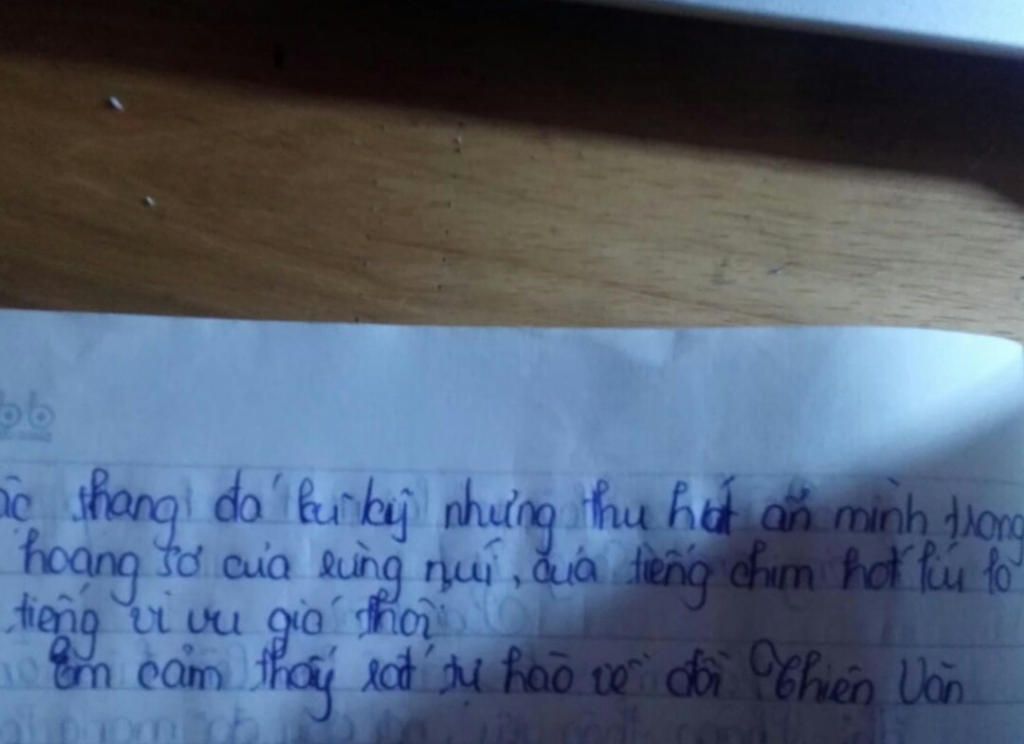 thang đá kì kỳ nhưng thu hút ẩn mình trong
hoang sơ của rừng núi, của tiếng chim hót líu lo
tiếng vi vu gió thổi
Em cảm thấy rất tự hào về đồi Thiên Văn